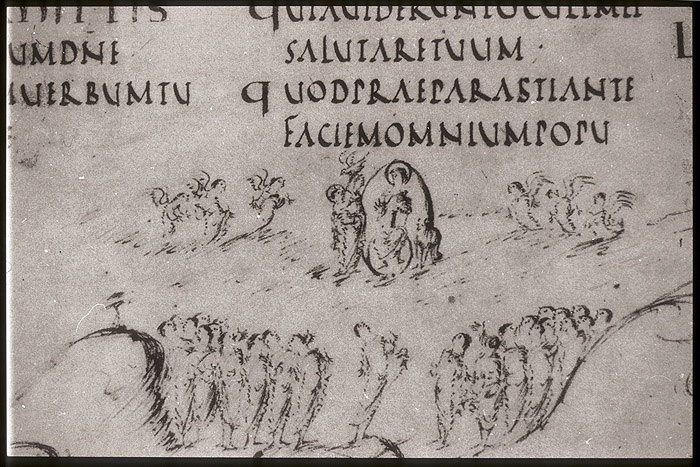 MITTIS
UMDNE
UERBUMTU
QUIAUIDERUNTOCULIMEI
SALUTARETUUM·
QUODPRAEPARASTIANTE
FACIEMOMNIUMPOPU